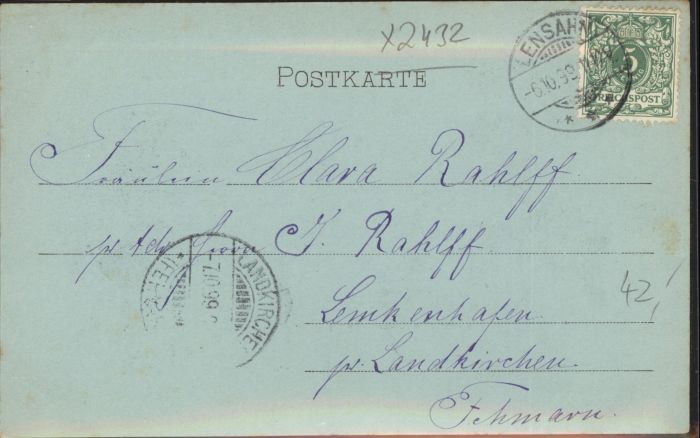 X2432
POSTKARTE
LENSAHN
-6.10.99
5
REICHSPOST
Fräulein Clara Rahlff
pr. Adr. Herrn J. Rahlff
Lemkenhafen
pr. Landkirchen.
Fehmarn.
LANDKIRCHEN
-7.10.99
42,-